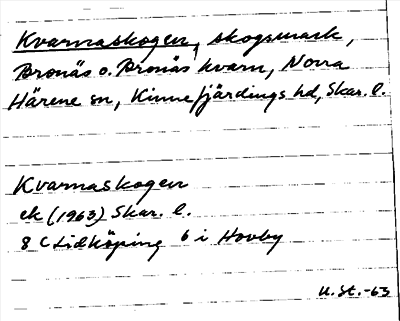 Kvarnaskogen, skogsmark,
Bronäs o. Bronäs kvarn, Norra
Härene sn, Kinnefjärdings hd, Skar. l.
Kvarnaskogen
ek (1963) Skar. l.
8 C Lidköping 6 i Hovby
U. St. -63